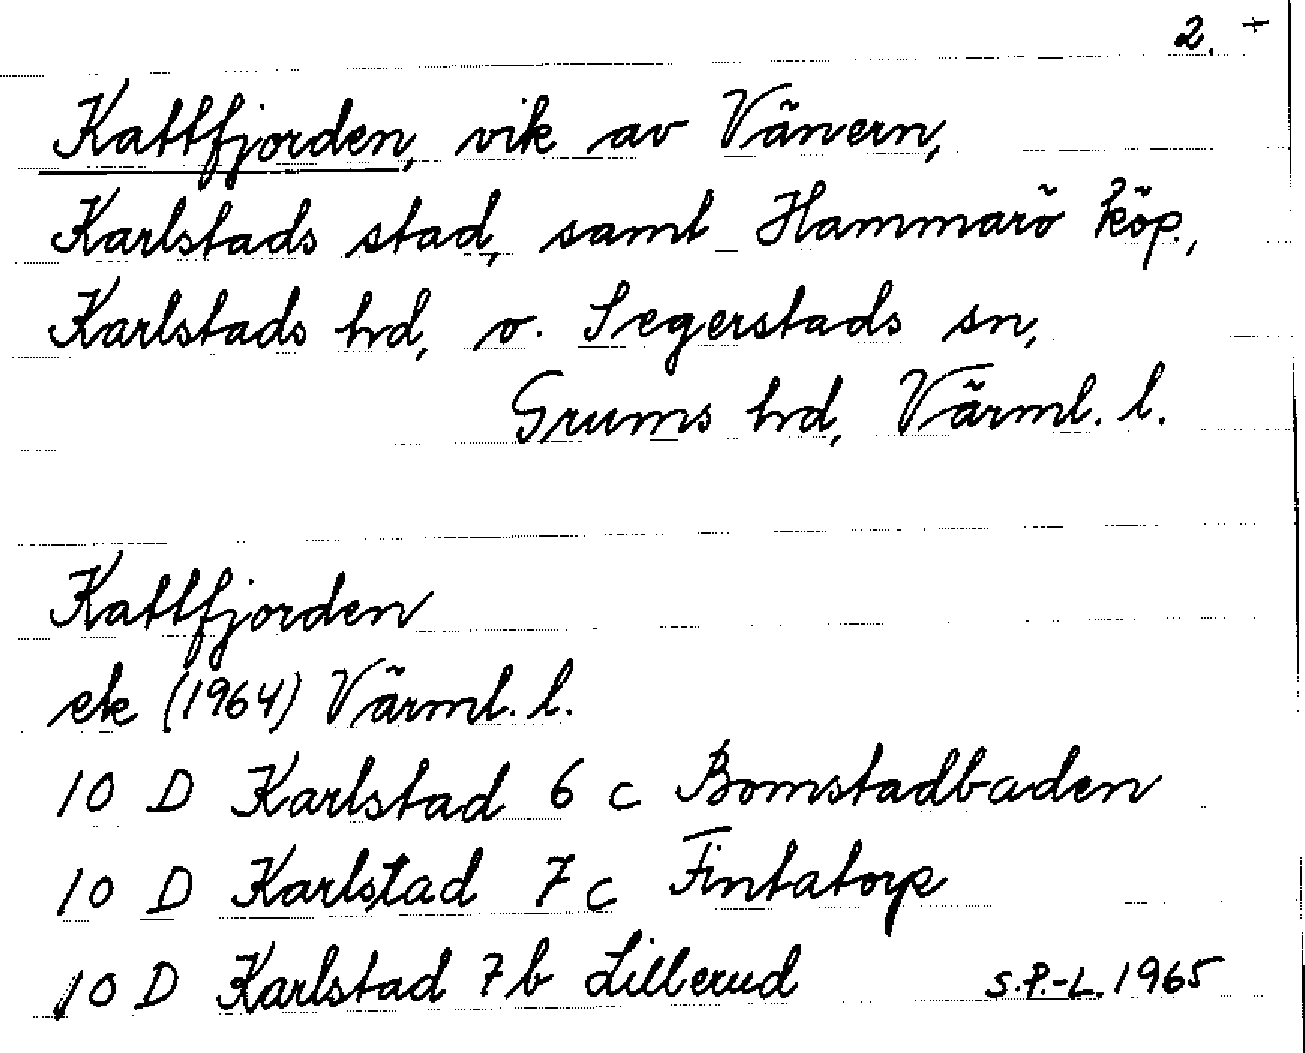 2. +
Kattfjorden, vik av Vänern,
Karlstads stad, samt Hammarö köp.,
Karlstads hd, o. Segerstads sn,
Grums hd, Värml. l.
Kattfjorden
ek (1964) Värml. l.
10 D Karlstad 6 c Bomstadbaden
10 D Karlstad 7 c Fintatorp
10 D Karlstad 7 b Lillerud S.P.-L. 1965